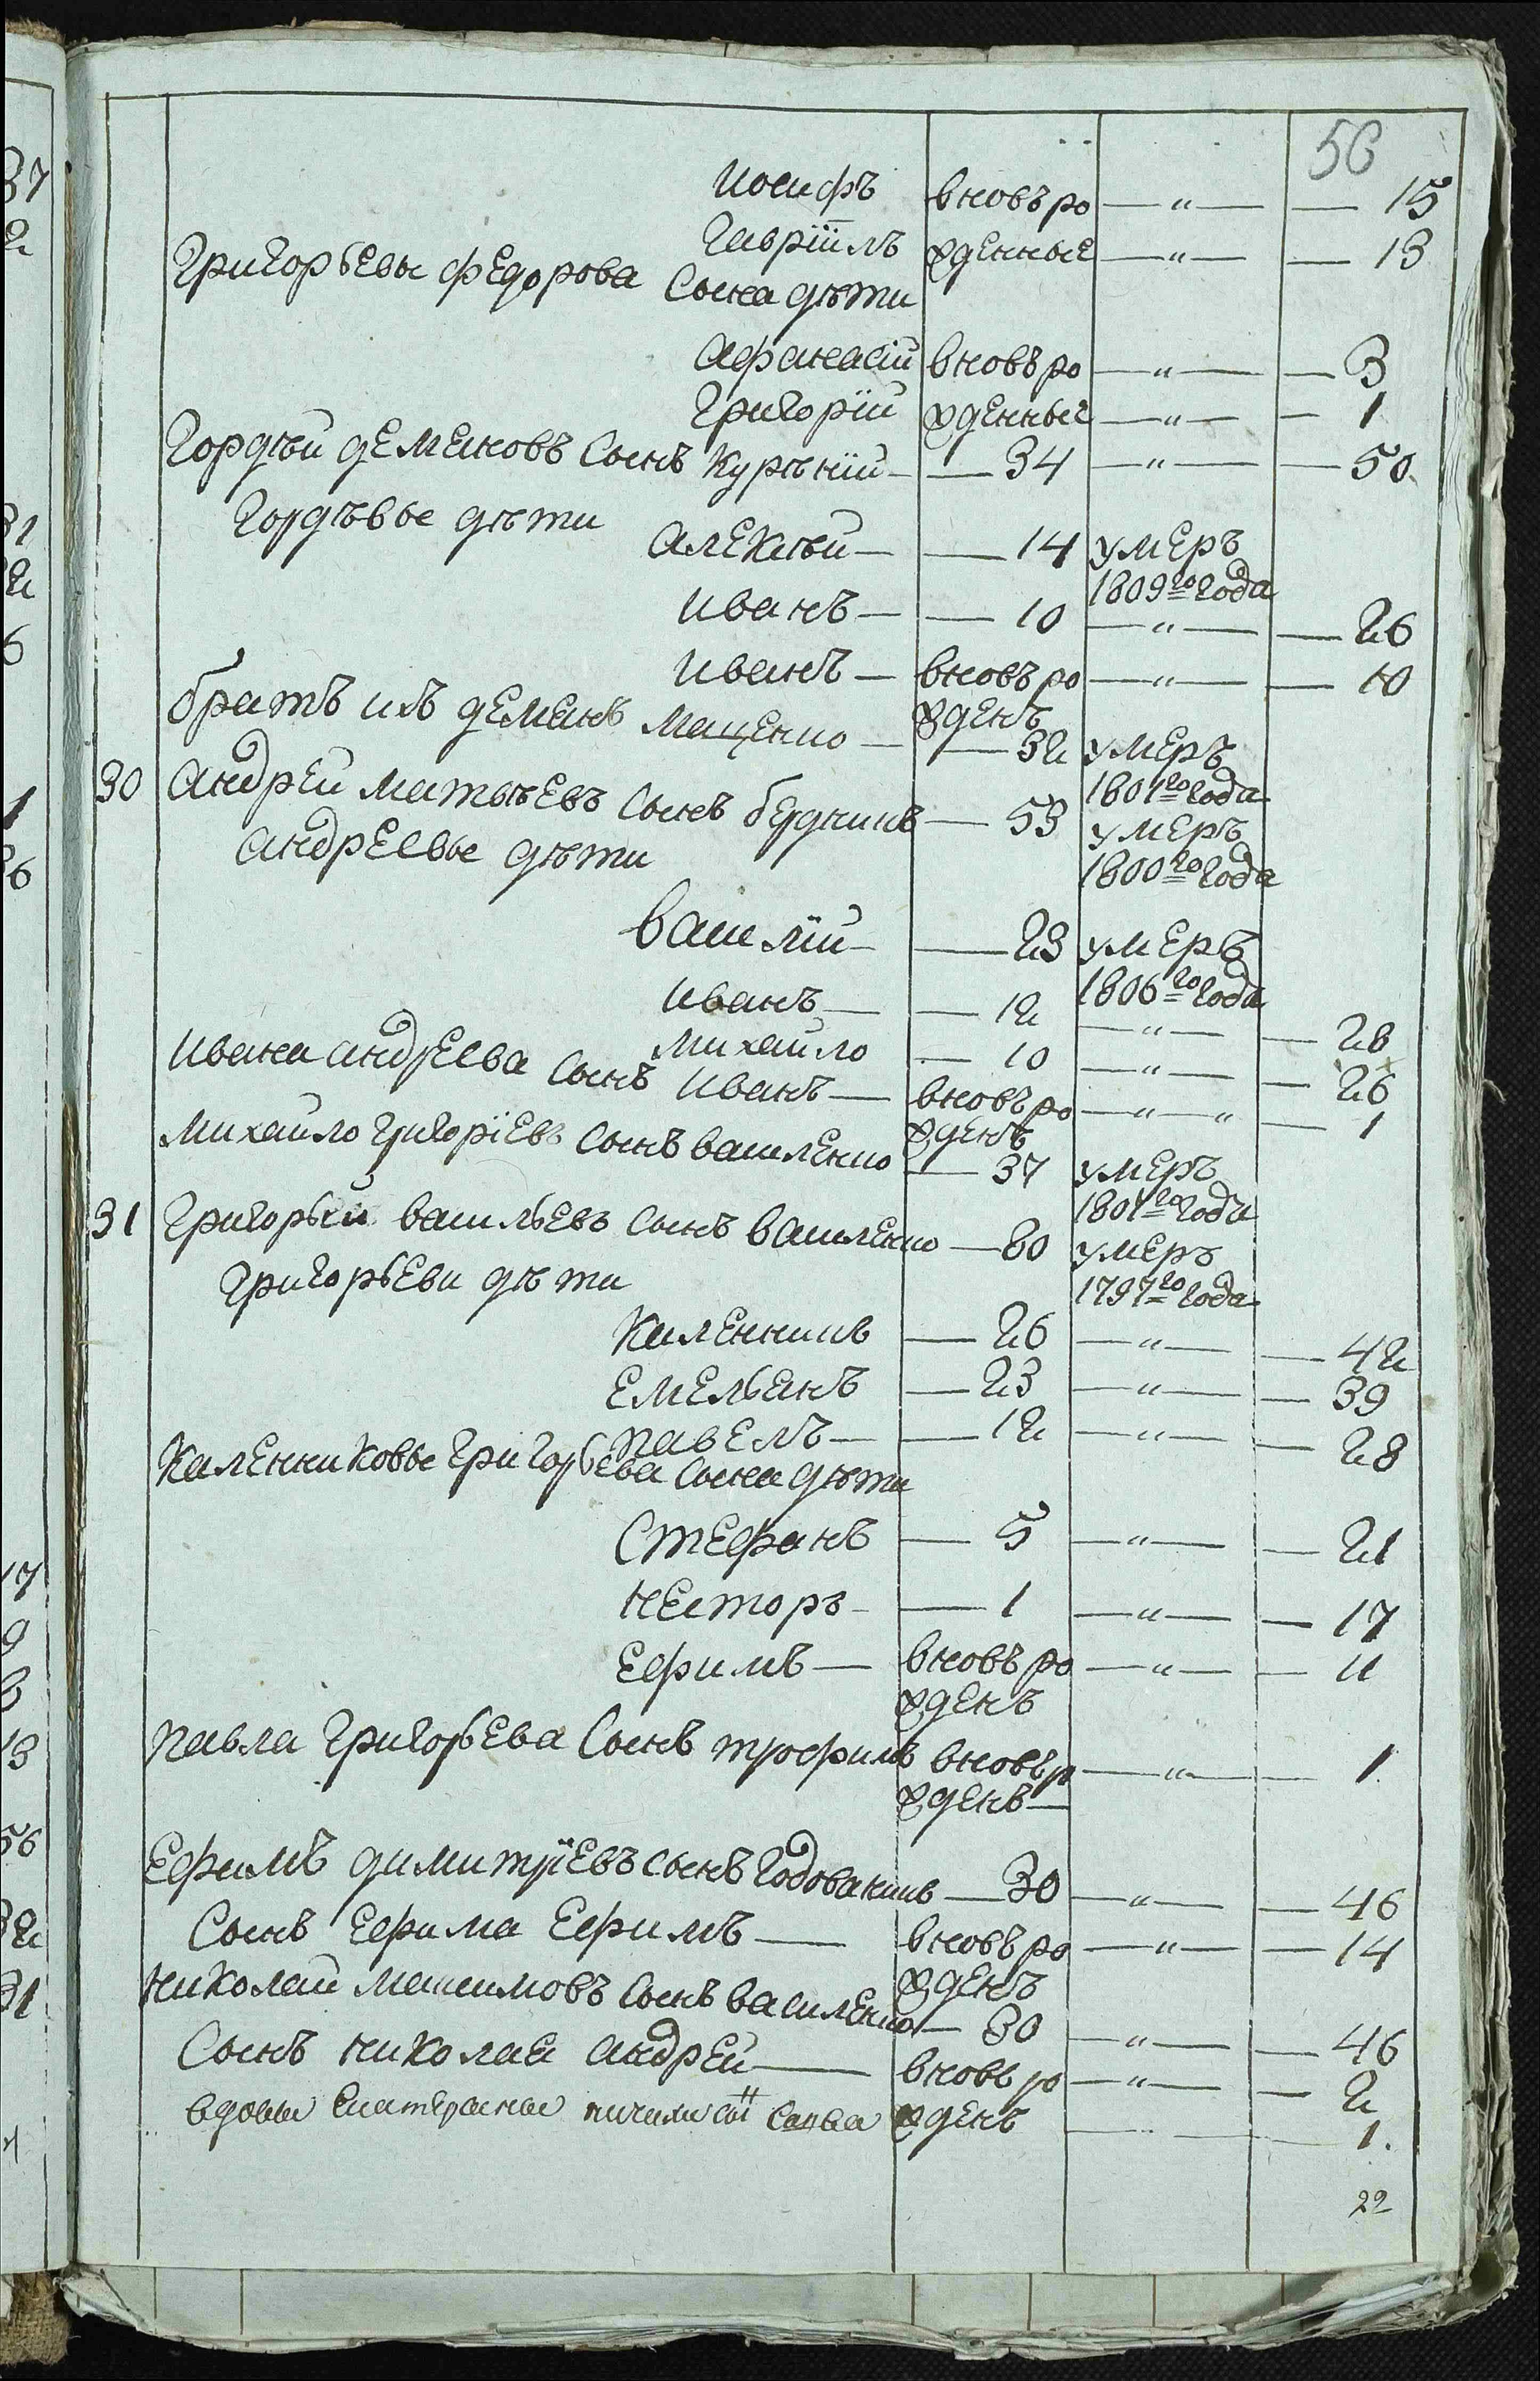 56
Иосифъ вновъ ро — " — — 15
Гаврїилъ жденные — " — — 13
Григорьевы Федорова сына дѣти
Афанасїй вновъ ро — " — — 3
Григорїй жденные — " — — 1
Гордѣй Демяновъ сынъ — 34 — " — — 50
Гордѣвые дѣти
Алексѣй — — 14 умеръ
1809го года
Иванъ — — 10 — " — — 26
Иванъ — вновъ ро — " — — 10
жденъ
братъ ихъ Демянъ Мащенко — — 32 умеръ
1801го года
30 Андрей Матвѣевъ сынъ — 53 умеръ
Андреевые дѣти
1800го года
Василїй — — 23 умеръ
1806го года
Иванъ — — 12 — " — — 28
Михайло — 10 — " — — 26
Ивана Андреева сынъ Иванъ — вновъ ро — " — " — 1
жденъ
Михайло Григорїевъ сынъ Василенко — 37 умеръ
1801го года
31 Григорьй Васильевъ сынъ Василенко — 80 умеръ
1797го года
Григорьеви дѣти
Каленникъ — 26 — " — — 42
Емельянъ — 23 — " — — 39
Павелъ — — 12 — " — — 28
Каленниковые Григорьева сына дѣти
Стефанъ — 5 — " — — 21
Несторъ — — 1 — " — — 17
Ефимъ — вновъ ро — " — — 11
жденъ
Павла Григорьева сынъ Трофимъ вновъ р — " — — 1
жденъ —
Ефимъ Димитрїевъ сынъ Годованикъ — 30 — " — — 46
Сынъ Ефима Ефимъ — вновъ ро — " — — 14
жденъ
Николай Максимовъ сынъ Василенко — 30 — " — — 46
Сынъ Николая Андрей — вновъ ро — " — — 2
жденъ
вдовы Екатерины сы Савва — — 1.
22